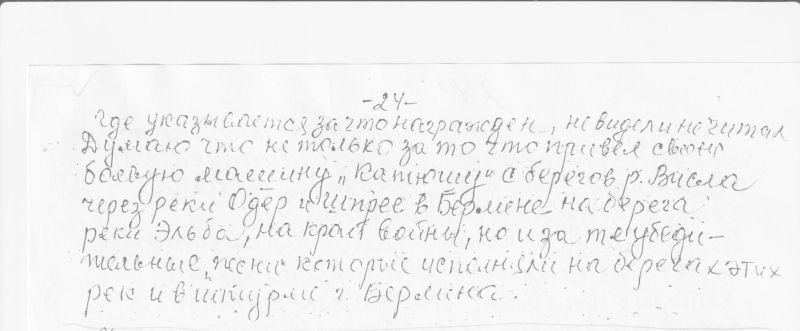 -24-
где указывается за что награжден, не видел и не читал
Думаю что не только за то что привел свою
боевую машину „Катюшу" с берегов р. Висла
через реки Одер и Шпрее в Берлине на берега
реки Эльба, на край войны, но и за те убеди-
тельные которые исполняли на берегах этих
рек и в штурме г. Берлина.